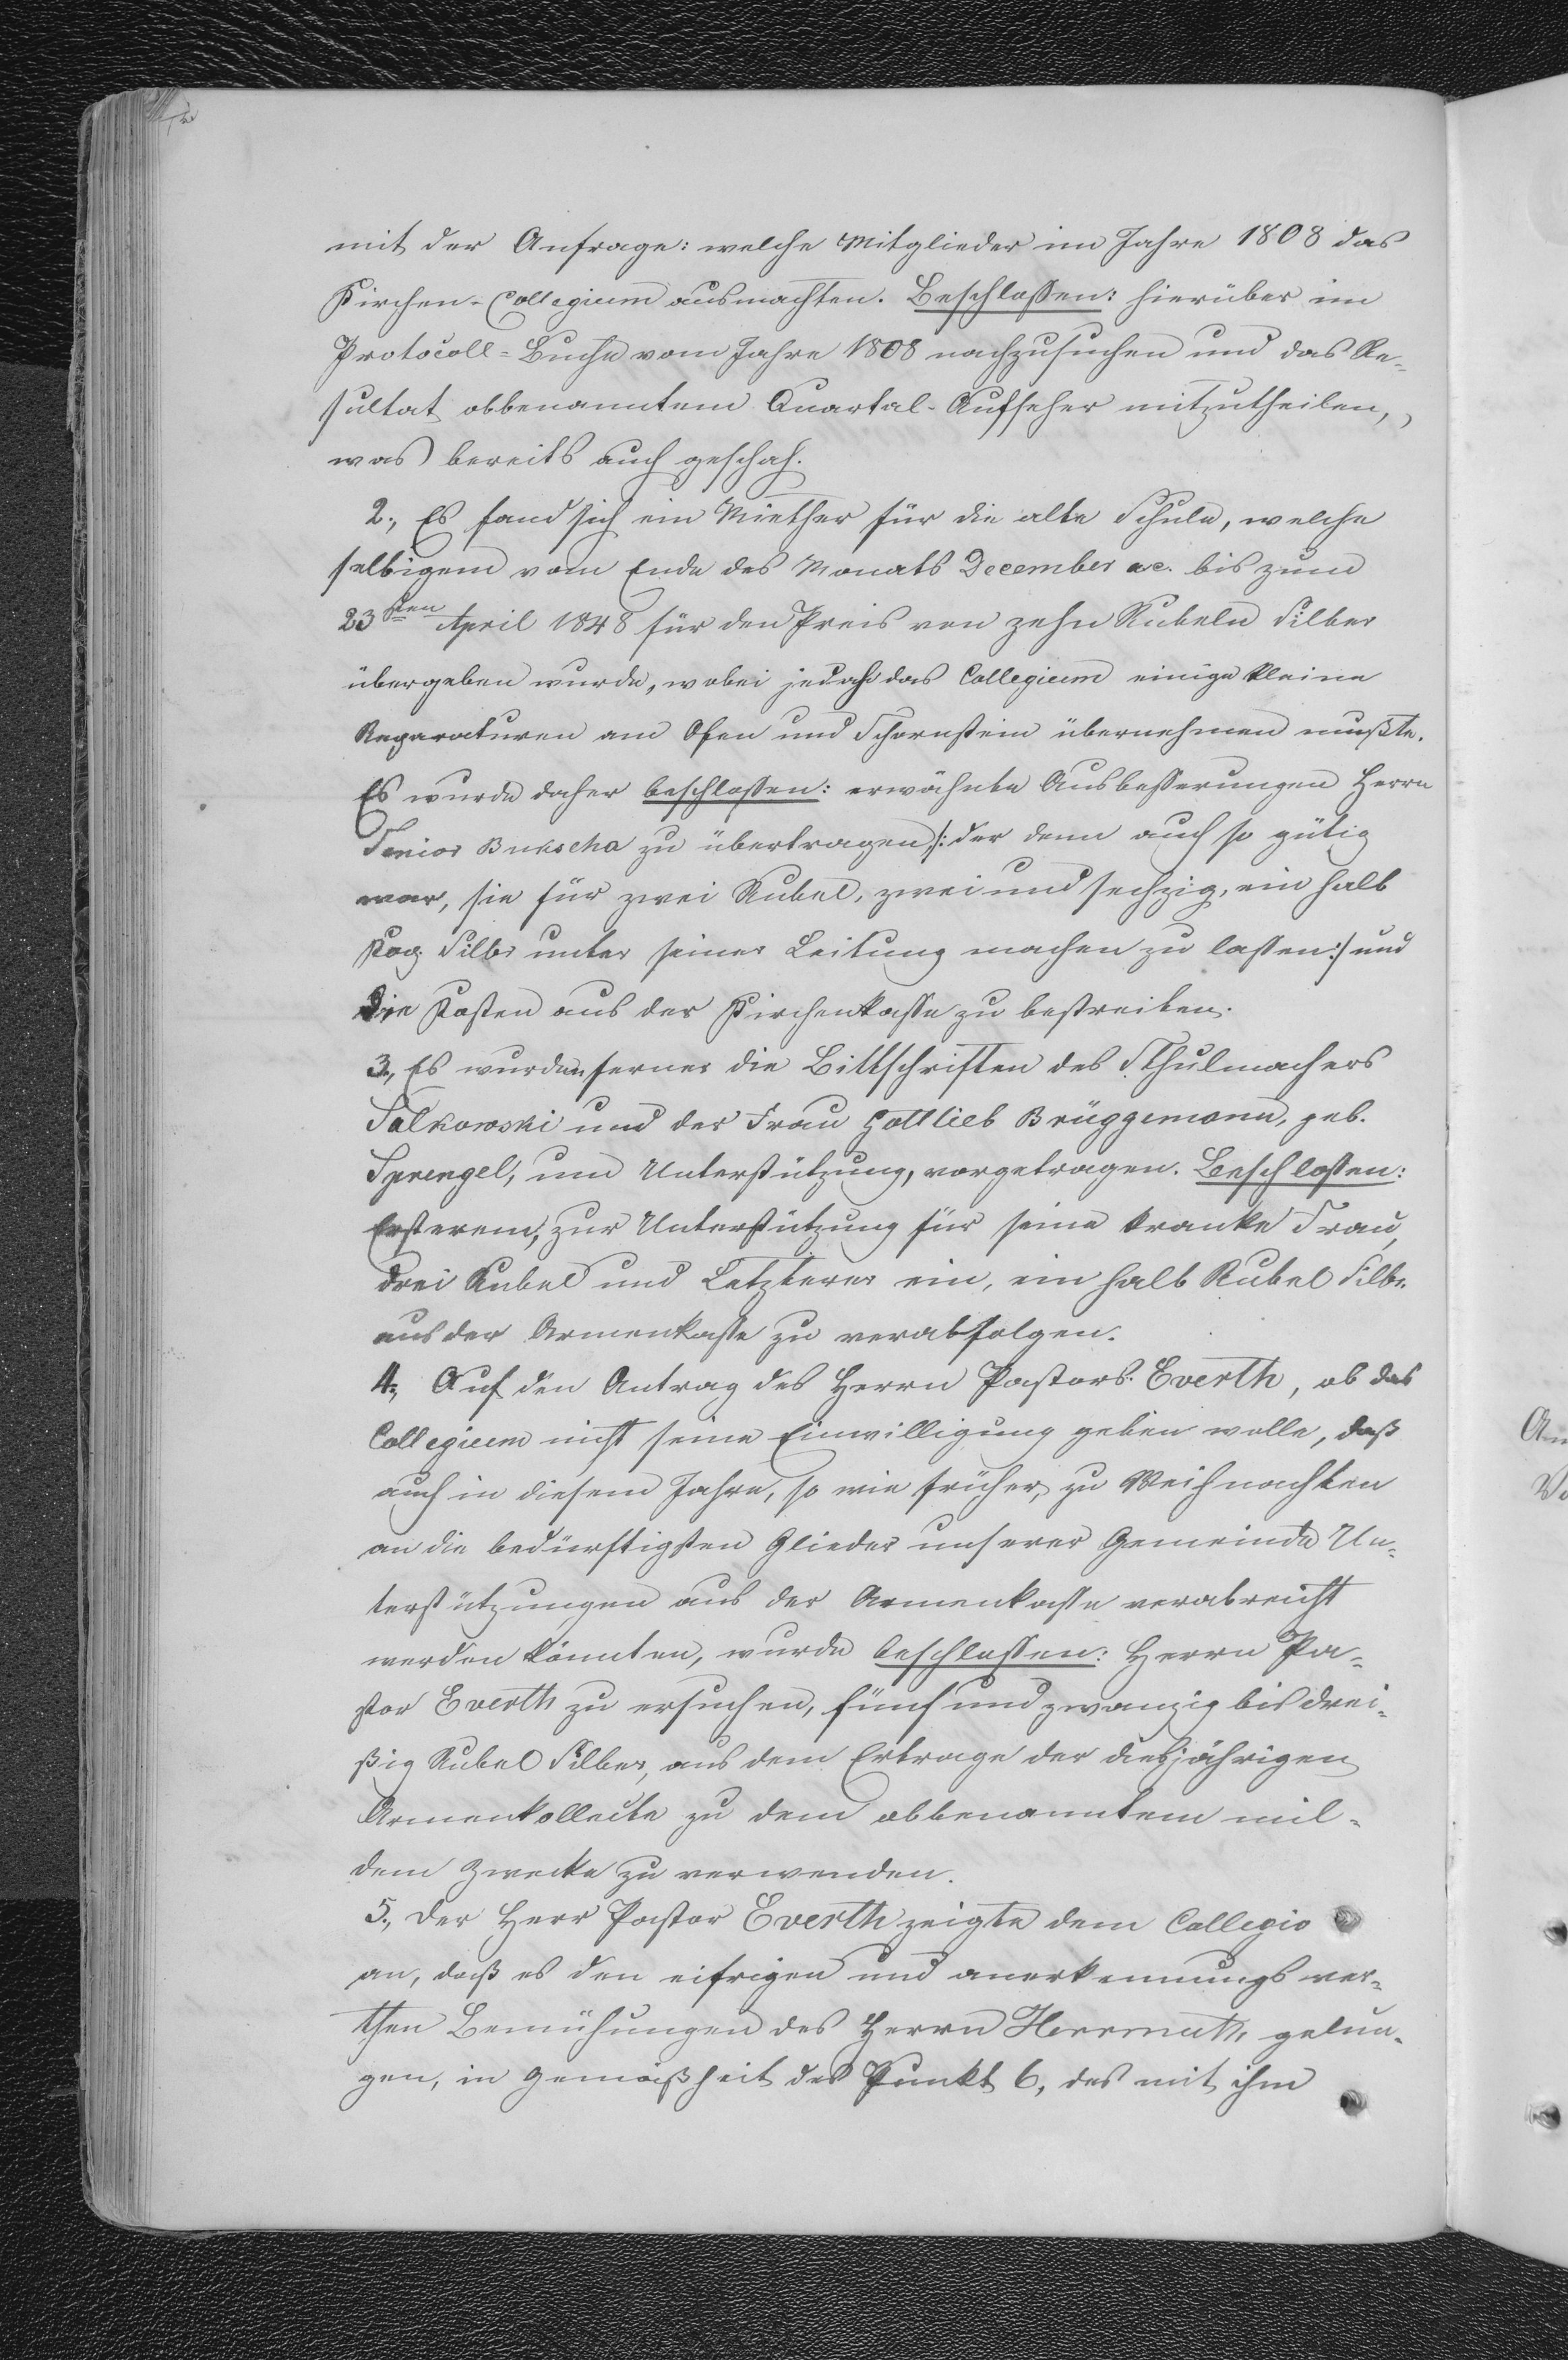 mit der Anfrage: welche Mitglieder im Jahre 1808 das
Kirchen-Collegium ausmachten. Beschlossen: hierüber im
Protocoll-Buche vom Jahre 1808 nachzusuchen und das Re-
sultat obbenanntem Quartal-Aufseher mitzutheilen,
was bereits auch geschah.
2., Es fand sich ein Miether für die alte Schule, welche
selbigem vom Ende des Monats December ac. bis zum
23sten April 1848 für den Preis von zehn Rubeln Silber
übergeben wurde, wobei jedoch das Collegium einige kleine
Reparaturen am Ofen und Schornstein übernehmen mußte.
Es wurde daher beschlossen: erwähnte Ausbesserungen Herrn
Senior Bukscha zu übertragen /: der denn auch so gütig
war, sie für zwei Rubel, zwei und sechzig, ein halb
Kop. Silbr unter seiner Leitung machen zu lassen :/ und
die Kosten aus der Kirchenkasse zu bestreiten.
3., Es wurden ferner die Bittschriften des Stuhlmachers
Salkowski und der Frau Gottlieb Brüggemann, geb.
Sprengel, um Unterstützung, vorgetragen. Beschlossen:
Ersterem, zur Unterstützung für seine kranke Frau,
drei Rubel und Letzterer ein, ein halb Rubel Silbr.
aus der Armenkasse zu verabfolgen.
4., Auf den Antrag des Herrn Pastors Everth, ob das
Collegium nicht seine Einwilligung geben wolle, daß
auch in diesem Jahre, so wie früher, zu Weihnachten
an die bedürftigsten Glieder unserer Gemeinde Un-
terstützungen aus der Armenkasse verabreicht
werden könnten, wurde beschlossen: Herrn Pa-
stor Everth zu ersuchen, fünf und zwanzig bis drei-
ßig Rubel Silber, aus dem Ertrage der diesjährigen
Armenkollecte zu dem obbenanntem mil-
dem Zwecke zu verwenden.
5., Der Herr Pastor Everth zeigte dem Collegio
an, daß es den eifrigen und anerkennungswer-
then Bemühungen des Herrn Herrmuth, gelun-
gen, in Gemäßheit des Punkt 6, des mit ihm